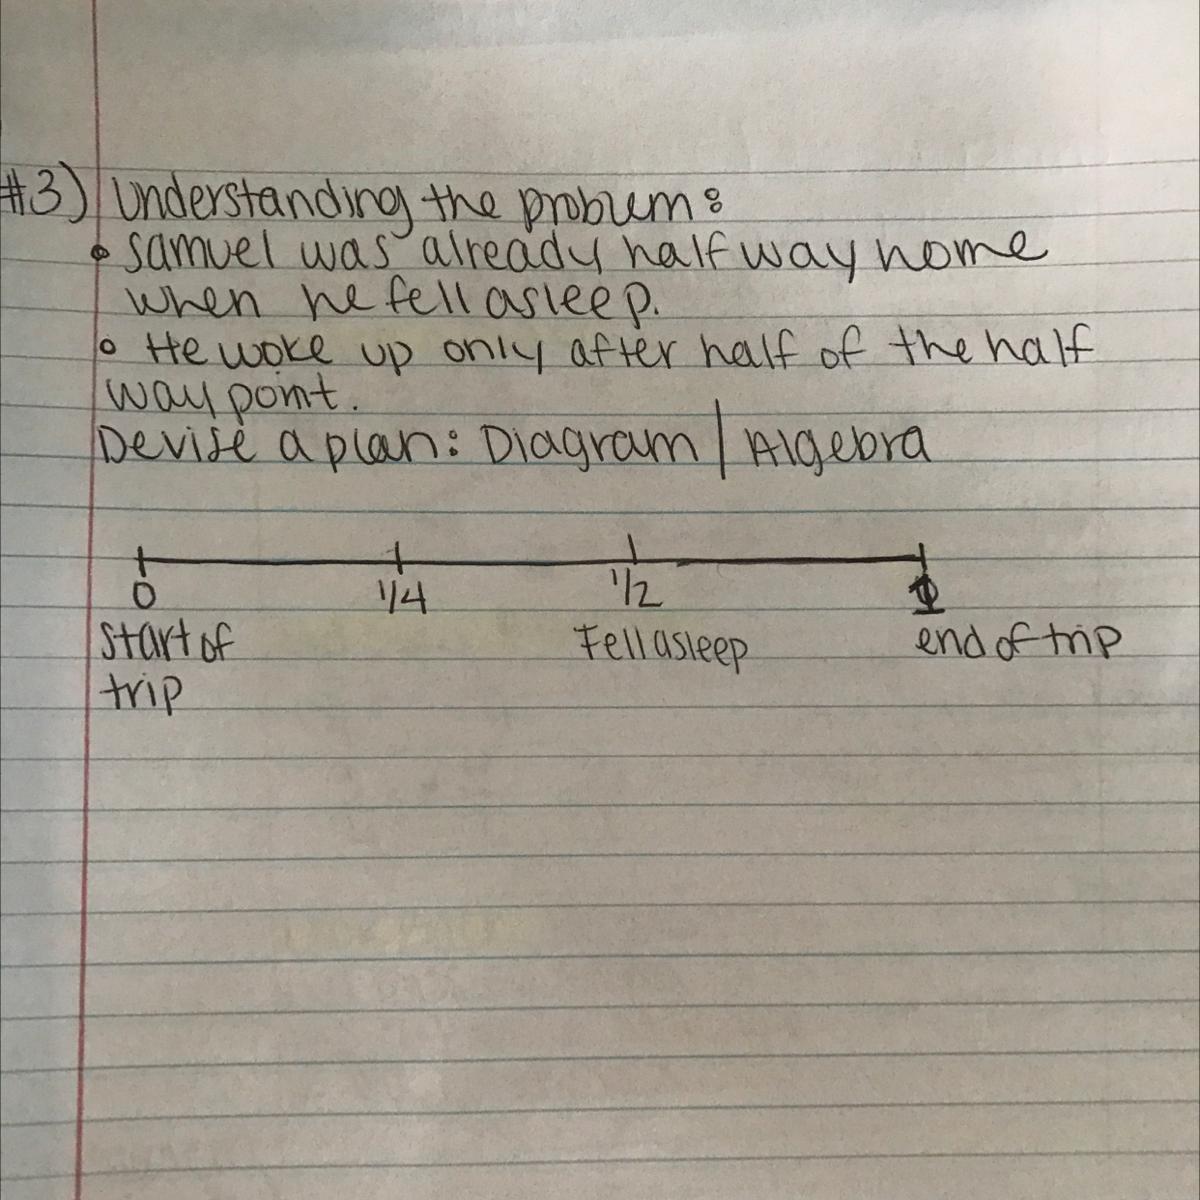 #3) Understanding the problem:
• Samuel was already half way home
when he fell asleep.
• He woke up only after half of the half
way point.
Devise a plan: Diagram / Algebra
0 1/4 1/2 1
start of Fell asleep end of trip
trip